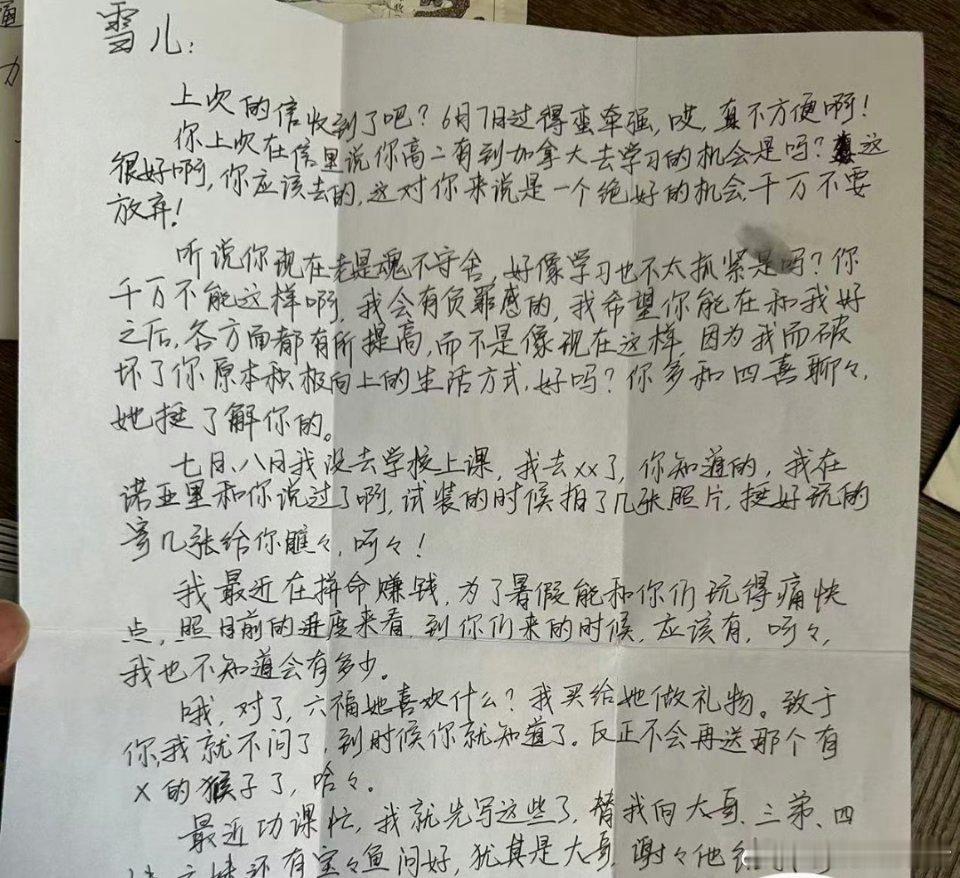 雪儿：
上次的信收到了吧？6月7日过得蛮牵强，哎，真不方便啊！
你上次在信里说你高二有到加拿大去学习的机会是吗？这
很好啊，你应该去的，这对你来说是一个绝好的机会，千万不要
放弃！
听说你现在老是魂不守舍，好像学习也不太抓紧是吗？你
千万不能这样啊，我会有负罪感的，我希望你能在和我好
之后，各方面都有所提高，而不是像现在这样，因为我而破
坏了你原本积极向上的生活方式，好吗？你多和四喜聊々，
她挺了解你的。
七月、八月我没去学校上课，我去xx了，你知道的，我在
诺亚里和你说过了啊，试装的时候拍了几张照片，挺好玩的
寄几张给你瞧々，呵々！
我最近在拼命赚钱，为了暑假能和你们玩得痛快
点，照目前的进度来看，到你们来的时候，应该有，呵々，
我也不知道会有多少。
哦，对了，六福她喜欢什么？我买给她做礼物。致于
你，我就不问了，到时候你就知道了。反正不会再送那个有
X的猴子了，哈々。
最近功课忙，我就先写这些了，替我向大哥、三弟、四
还有宝々鱼问好，犹其是大哥，谢々他
力